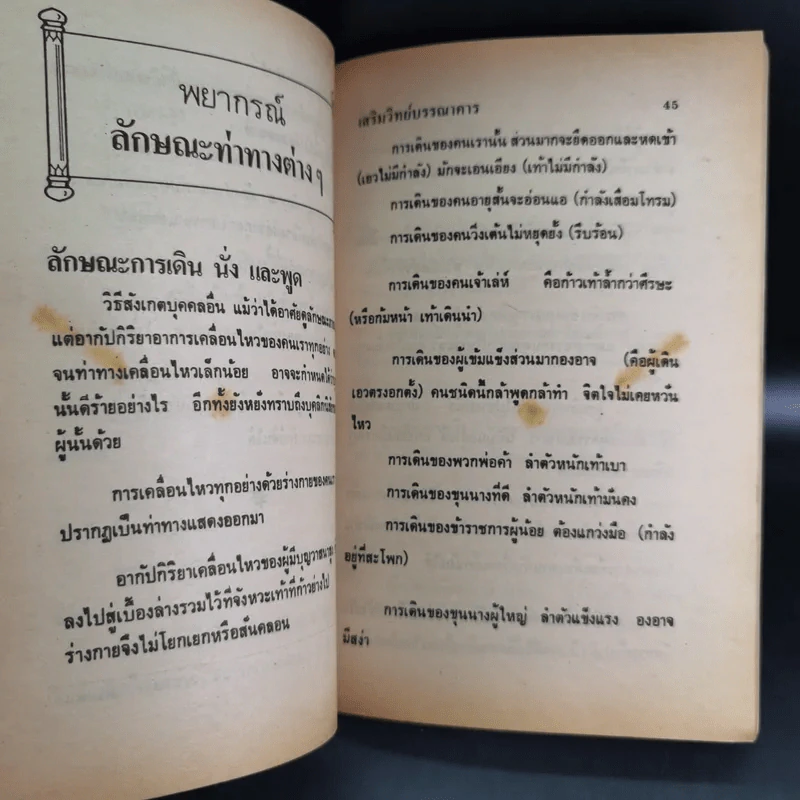 พยากรณ์
ลักษณะท่าทางต่าง ๆ
ลักษณะการเดิน นั่ง และพูด
วิธีสังเกตบุคคลอื่น แม้ว่าได้อาศัยดูลักษณะ
แต่อากัปกิริยาอาการเคลื่อนไหวของคนเราทุกอย่าง
จนท่าทางเคลื่อนไหวเล็กน้อย อาจจะกำหนดได้
นั้นดีร้ายอย่างไร อีกทั้งยังหยั่งทราบถึงบุคลิก
ผู้นั้นด้วย
การเคลื่อนไหวทุกอย่างด้วยร่างกายของคน
ปรากฏเป็นท่าทางแสดงออกมา
อากัปกิริยาเคลื่อนไหวของผู้มีบุญวาสนา
ลงไปสู่เบื้องล่างรวมไว้ที่จังหวะเท้าที่ก้าวย่างไป
ร่างกายจึงไม่โยกเยกหรือสั่นคลอน
เสริมวิทย์บรรณาคาร 45
การเดินของคนเรานั้น ส่วนมากจะยืดออกและหดเข้า
(เอวไม่มีกำลัง) มักจะเอนเอียง (เท้าไม่มีกำลัง)
การเดินของคนอายุสั้นจะอ่อนแอ (กำลังเสื่อมโทรม)
การเดินของคนวิ่งเต้นไม่หยุดยั้ง (รีบร้อน)
การเดินของคนเจ้าเล่ห์ คือก้าวเท้าล้ำกว่าศีรษะ
(หรือก้มหน้า เท้าเดินนำ)
การเดินของผู้เข้มแข็งส่วนมากองอาจ (คือผู้เดิน
เอวตรงอกตั้ง) คนชนิดนี้กล้าพูดกล้าทำ จิตใจไม่เคยหวั่น
ไหว
การเดินของพวกพ่อค้า ลำตัวหนักเท้าเบา
การเดินของขุนนางที่ดี ลำตัวหนักเท้ามั่นคง
การเดินของข้าราชการผู้น้อย ต้องแกว่งมือ (กำลัง
อยู่ที่สะโพก)
การเดินของขุนนางผู้ใหญ่ ลำตัวแข็งแรง องอาจ
มีสง่า